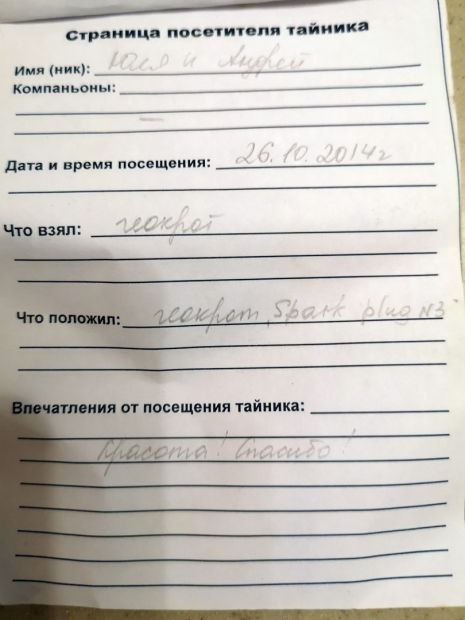 Страница посетителя тайника
Имя (ник): Юля и Андрей
Компаньоны:
Дата и время посещения: 26.10.2014г
Что взял: геокрот
Что положил: геокрот, Spark plug №3
Впечатления от посещения тайника:
Красота! Спасибо!